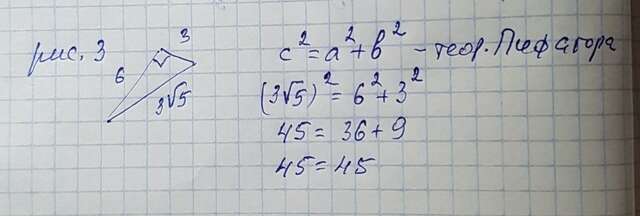 рис. 3
3
6
3√5
c² = a² + b² - теор. Пифагора
(3√5)² = 6² + 3²
45 = 36 + 9
45 = 45